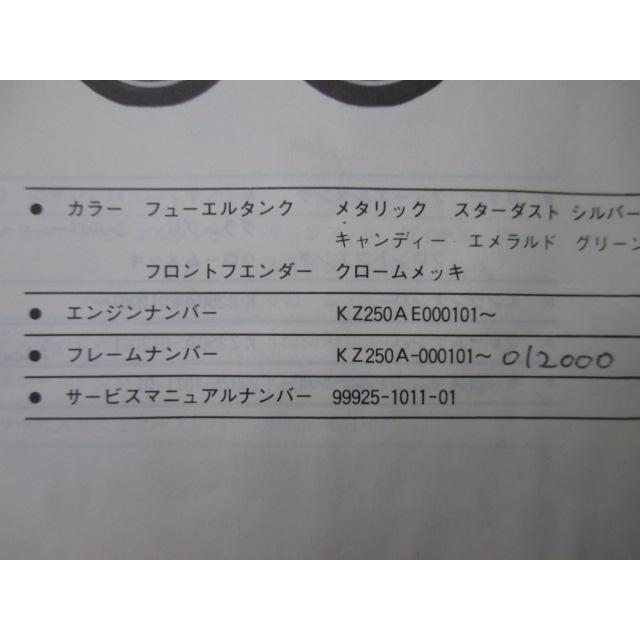 ● カラー フューエルタンク メタリック スターダスト シルバー
キャンディー エメラルド グリーン
フロントフエンダー クロームメッキ
● エンジンナンバー KZ250AE000101〜
● フレームナンバー KZ250A-000101〜 012000
● サービスマニュアルナンバー 99925-1011-01